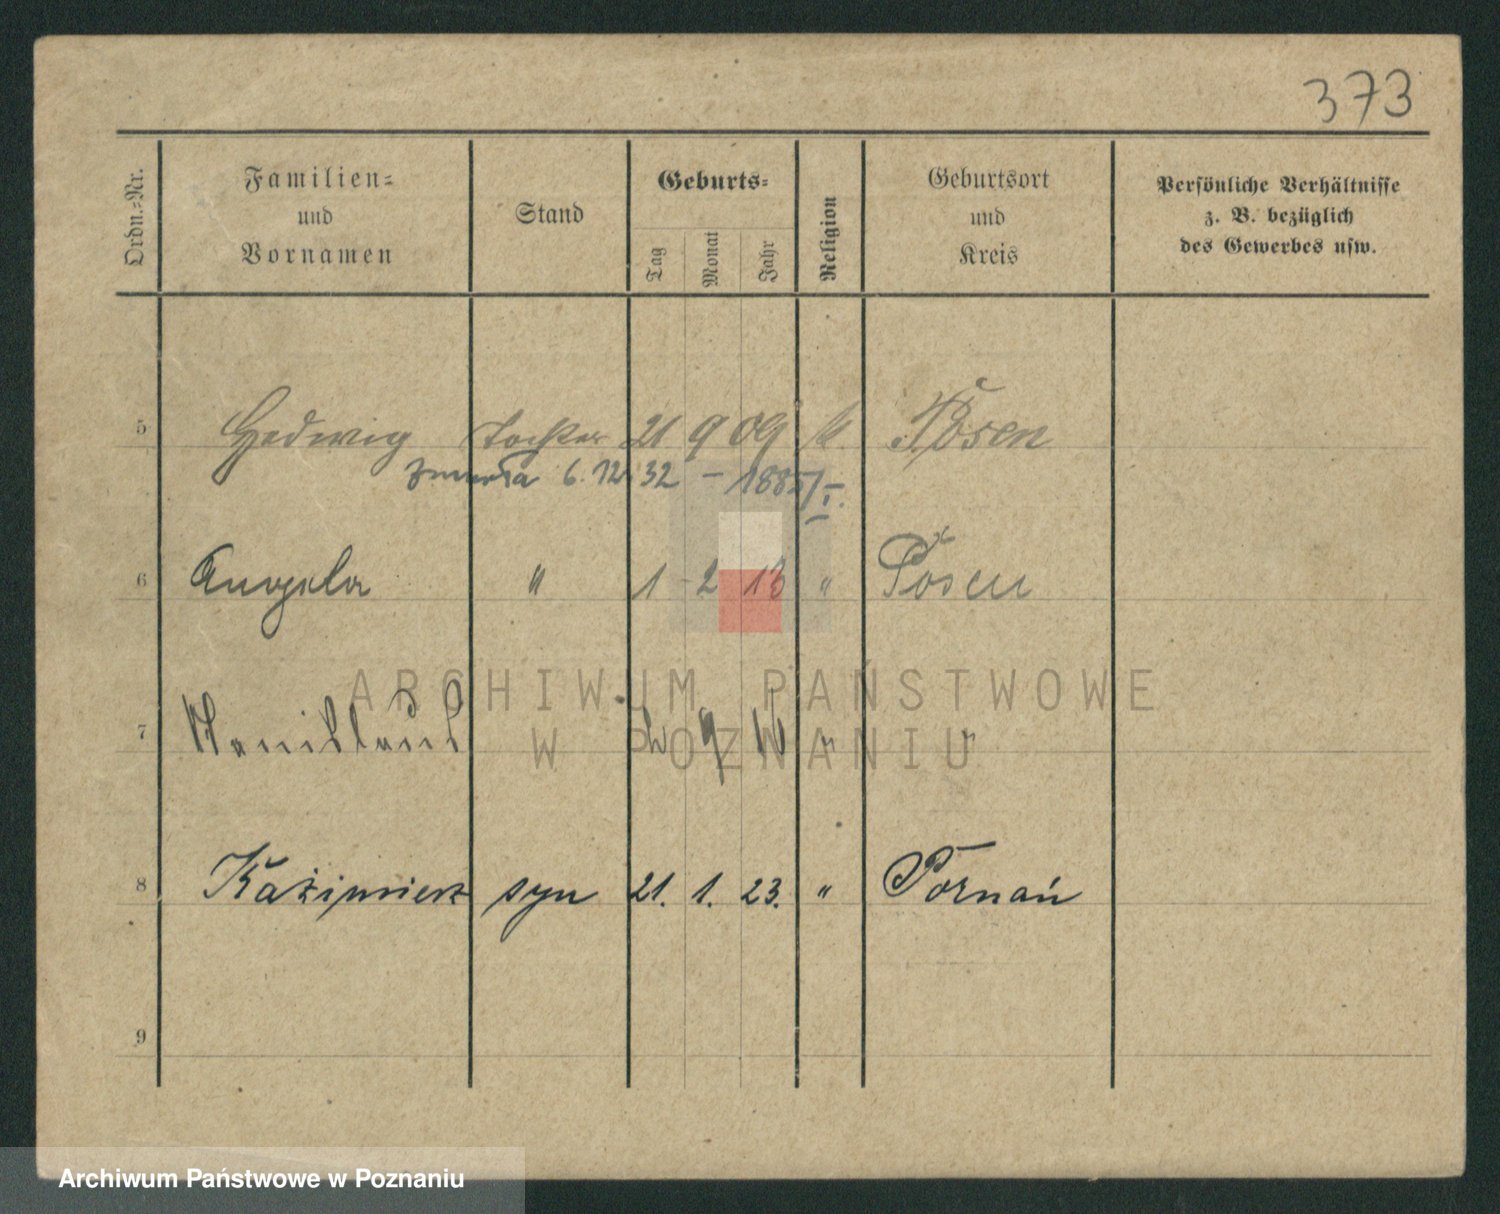 373
Ordn.-Nr.
Familien-
und
Vornamen
Stand
Geburts-
Tag
Monat
Jahr
Religion
Geburtsort
und
Kreis
Persönliche Verhältnisse
z. B. bezüglich
des Gewerbes usw.
5 Hedwig Tochter 21 9 09 k. Posen
zmarła 6.12.32 – 1885/I.
6 Angela " 1 2 13 " Posen
7 9 " "
8 Kazimierz syn 21. 1. 23. " Poznań
9
ARCHIWUM PAŃSTWOWE
W POZNANIU
Archiwum Państwowe w Poznaniu